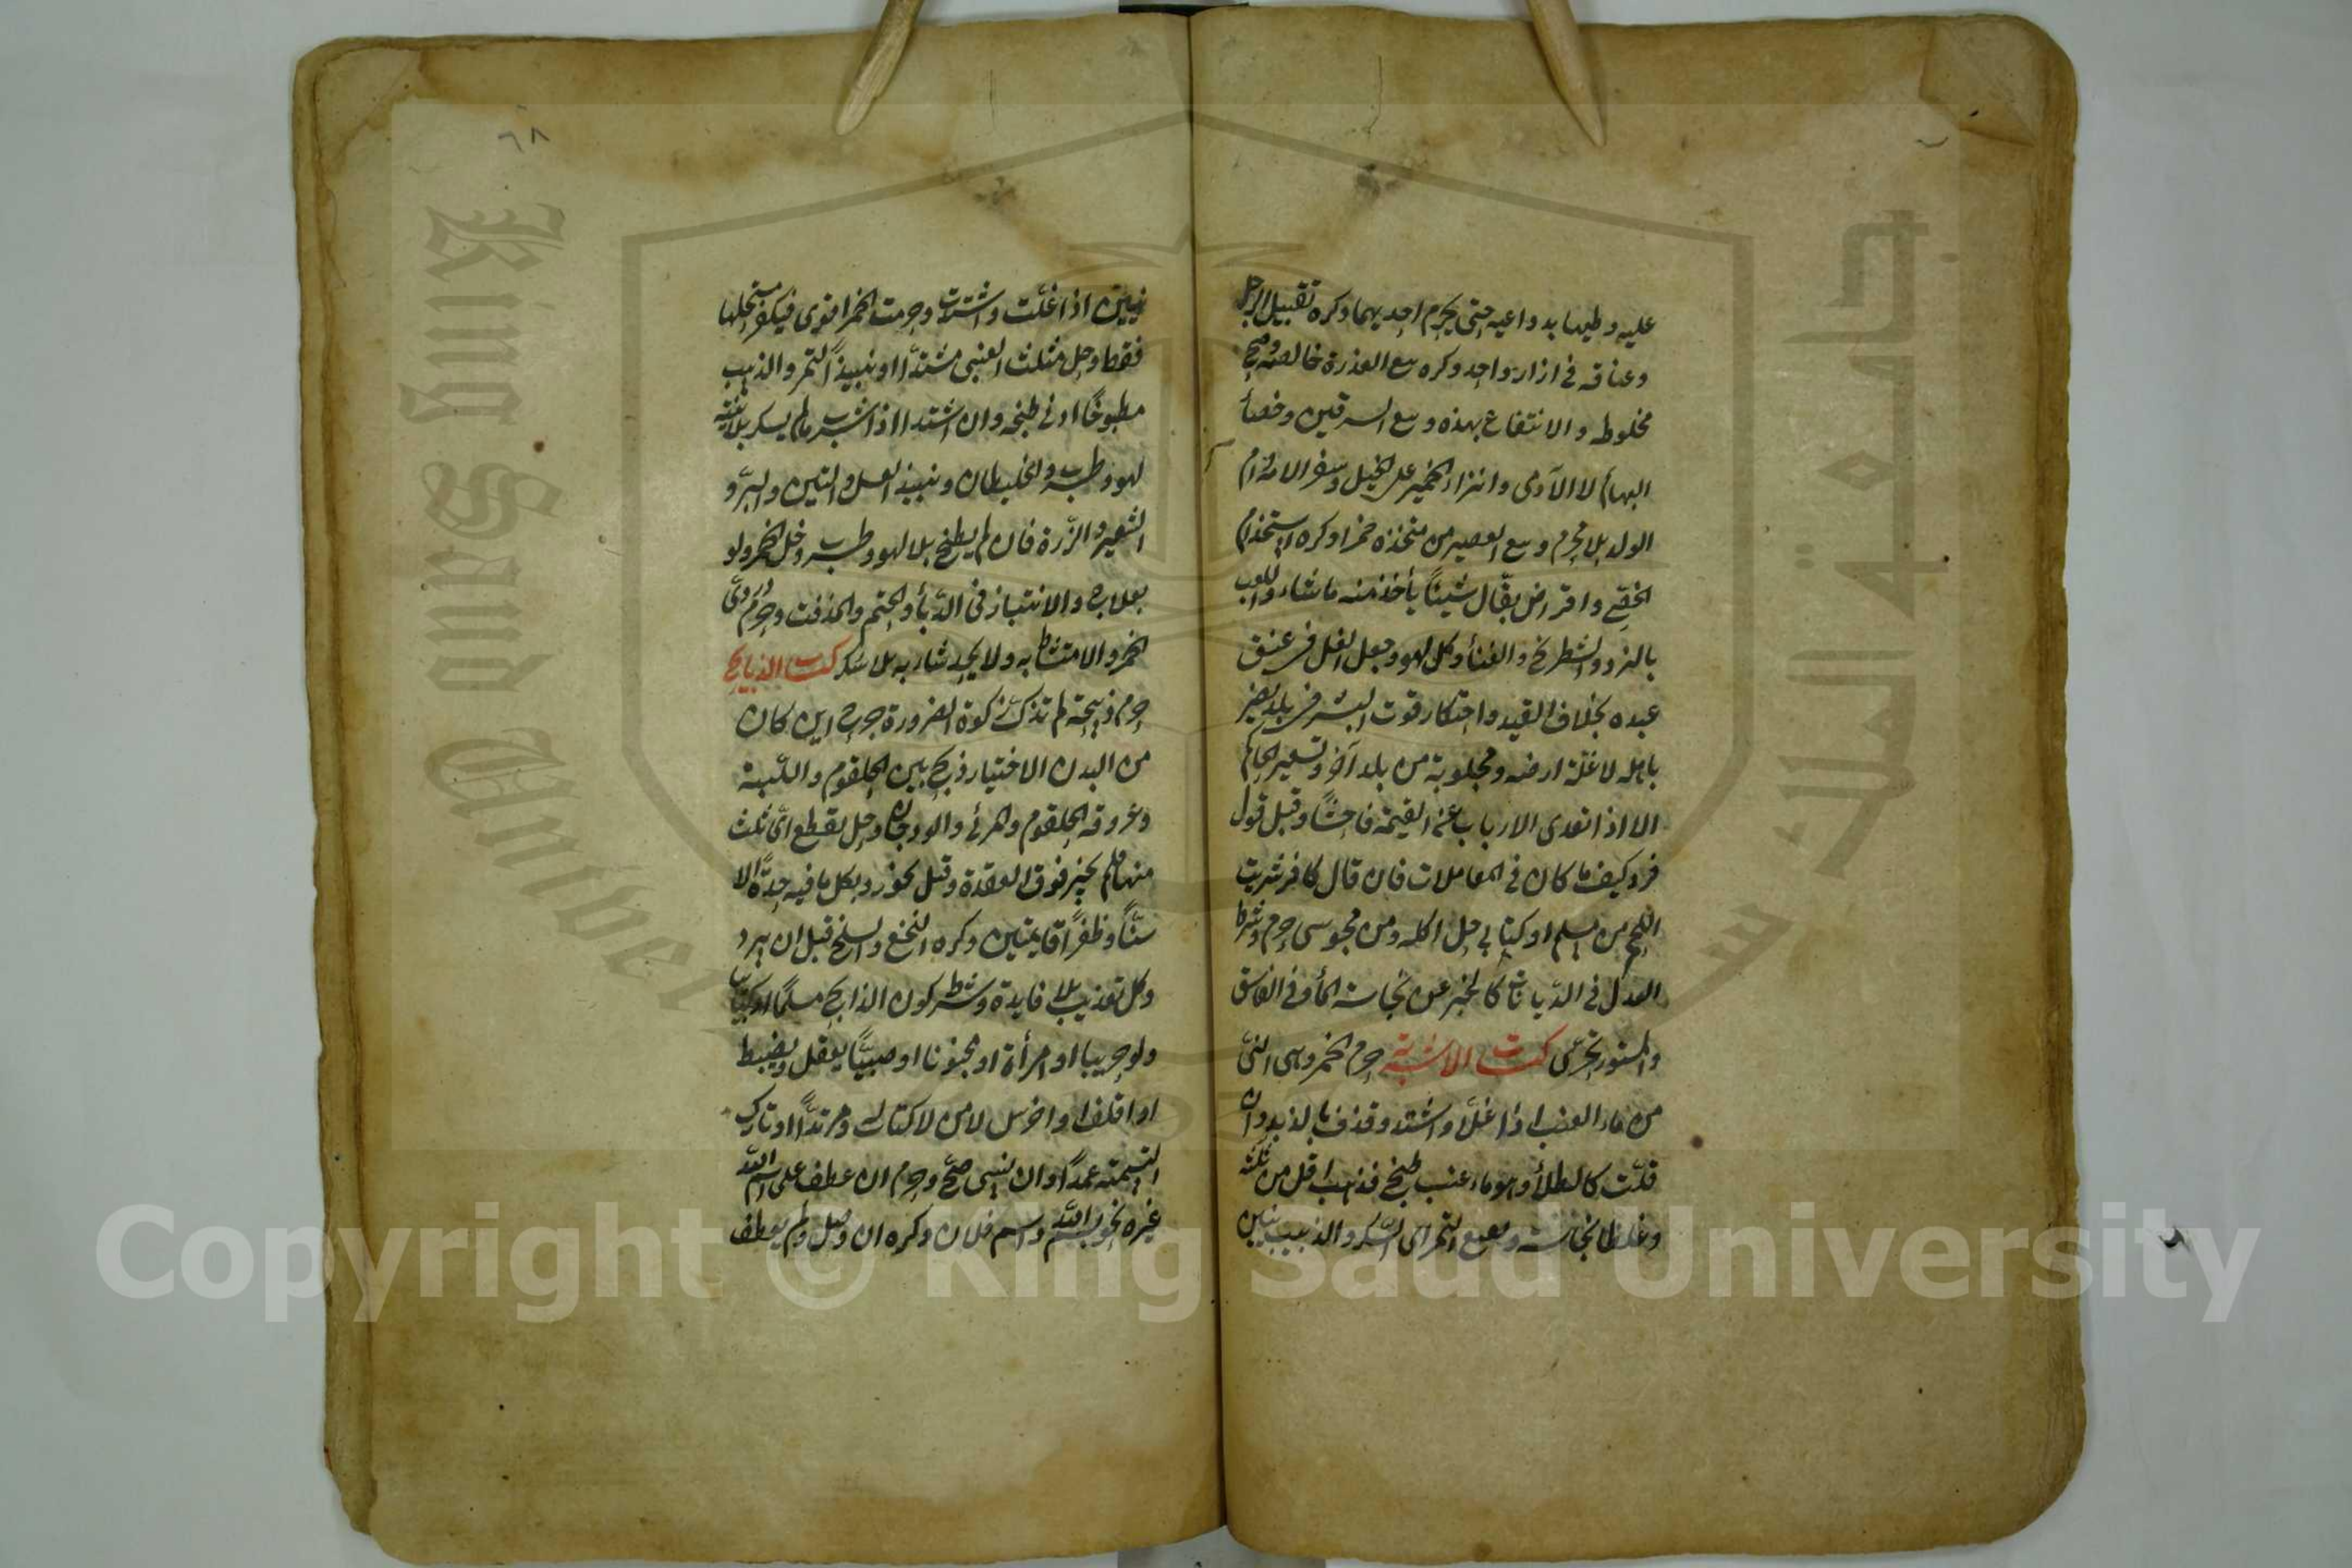 عليه وطيها بدواعيه حتى يحرم احديهما وكره تقبيل الرجل
وعناقه في ازار واحد وكره بيع العذرة خالصة وصح
مخلوطه والانتفاع بهذه وبيع السرقين وخصأ
البهايم لا الآدمى وانزاء الحمير على الخيل وسفر الامة وام
الولد بلا محرم وبيع العصير من متخذه خمرا وكره استخدام
الخصي واقراض بقّال شيئاً يأخذ منه ما شاء واللعب
بالنرد والشطرنج والغنأ وكل لهو وجعل الغل في عنق
عبده بخلاف القيد واحتكار قوت البشر في بلد يضر
باهله لا غلّة ارضه ومجلوبة من بلد آخر وتسعير الحاكم
الا اذا تعدى الارباب عن القيمة فاحشًا وقبل قول
فرد كيف ما كان في المعاملات فان قال كافر شريت
اللحم من مسلم او كتابي حل اكله ومن مجوسى حرم وشرط
العدل في الدّيانات كالخبر عن نجاسة المأ وفي الفاسق
والمستور تحرّى كتاب الاشربة حرم الخمر وهي النىّ
من ماء العنب اذا غلا واشتد وقذف بالذبد وان
قلّت كالطلأ وهو ماء عنب طبخ فذهب اقل من ثلثيه
وغلظا نجاسة ونقيع التمر اى السّكر والذبيب نيين
نيين اذا غلت واشتدت وحرمت الخمر اقوى فيكفر مستحلها
فقط وحل مثلث العنبى مشتدًا ونبيذ التمر والذبيب
مطبوخًا ادنى طبخه وان اشتد اذا شرب ما لم يسكر بلا نية
لهو وطرب والخليطان ونبيذ العسل والتين والبرّ و
الشعير والذّرة فان لم يطبخ بلا لهو وطرب وخل الخمر ولو
بعلاج والانتباذ فى الدّبأ والحنتم والمذفت وحرم دردىّ
الخمر والامتشاط به ولا يحد شاربه بلا سكر كتاب الذبايح
حرم ذبيحة لم تذك ذكوة الضرورة جرح اين كان
من البدن الاختيار ذبح بين الحلقوم واللّبة
وعروقه الحلقوم والمرئ والودجان وحل بقطع اىّ ثلث
منها فلم يجز فوق العقدة وقيل يجوز وبكل ما فيه حدّة الا
سنًّا وظفرًا قايمتين وكره النخع والسلخ قبل ان يبرد
وكل تعذيب بلا فايدة وشرط كون الذابح مسلمًا او كتابيا
ولو حربيا او امرأة او مجنونا او صبيًّا يعقل ويضبط
او اقلف او اخرس لا من لا كتاب له ومرتدًّا او تارك
التسمية عمدًا وان نسى صحّ وحرم ان عطف على اسم اللّه
غيره نحو بسم اللّه واسم فلان وكره ان وصل ولم يعطف